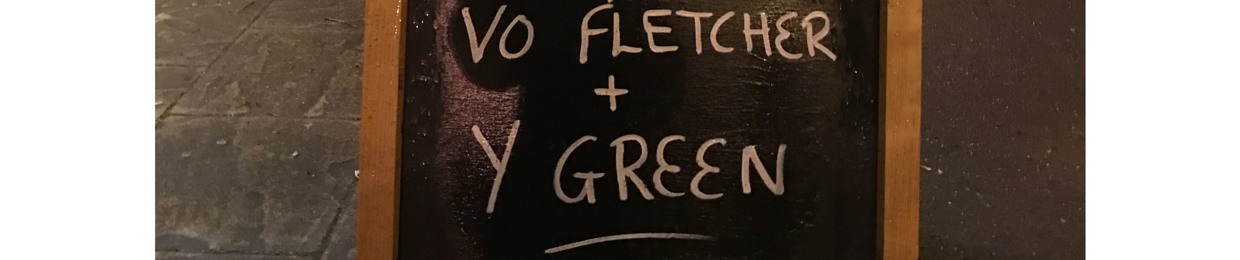 VO FLETCHER
+
Y GREEN